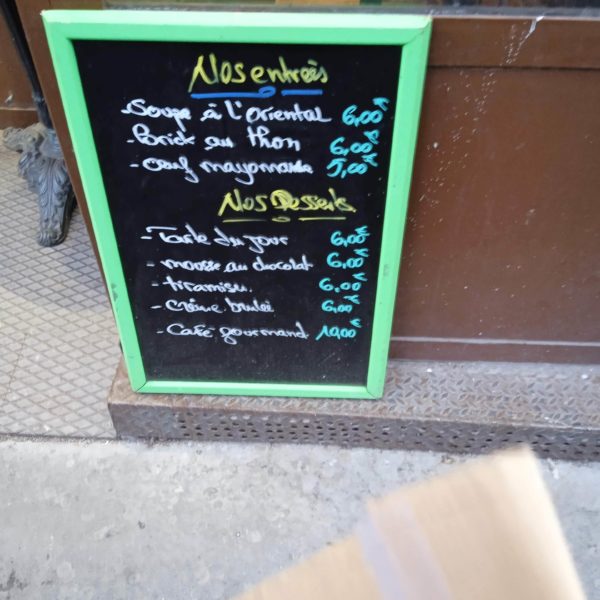 Nos entrées
- Soupe à l'oriental 6,00€
- Brick au thon 6,00€
- Oeuf mayonnaise 5,00€
Nos Desserts
- Tarte du jour 6,00€
- mousse au chocolat 6,00€
- tiramisu. 6,00€
- Crème brulée 6,00€
- Café gourmand 10,00€